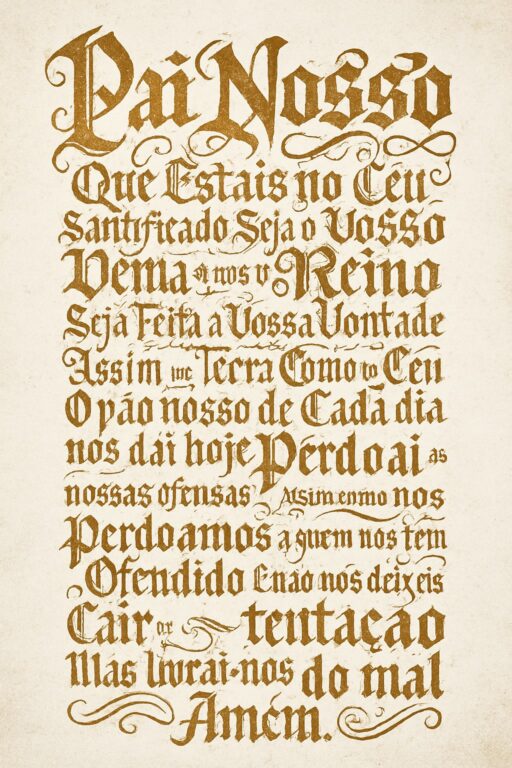 Pai Nosso
Que Estais no Céu
Santificado Seja o Vosso
Venha a nos v Reino
Seja Feita a Vossa Vontade
Assim Terra Como Ceu
O pão nosso de Cada dia
nos dai hoje Perdoai as
nossas ofensas nos
Perdoamos a quem nos tem
Ofendido E não nos deixeis
Cair tentação
Mas livrai-nos do mal
Amém.